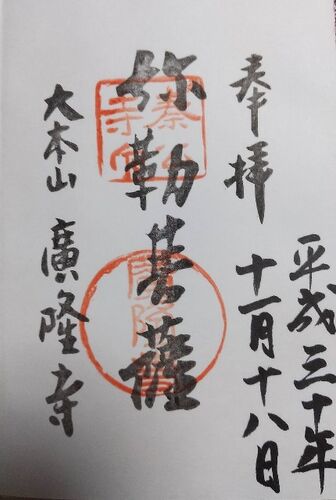 奉拝
平成三十年
十一月十八日
弥勒菩薩
大本山 廣隆寺